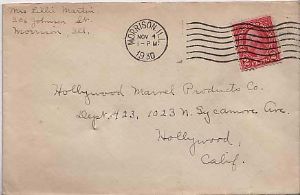 Mrs Lillie Martin
306 Johnson St.
Morrison, Ill.
MORRISON, ILL.
NOV 4
1-PM
1930
Hollywood Marvel Products Co.
Dept 423, 1023 N. Sycamore Ave.
Hollywood,
Calif.